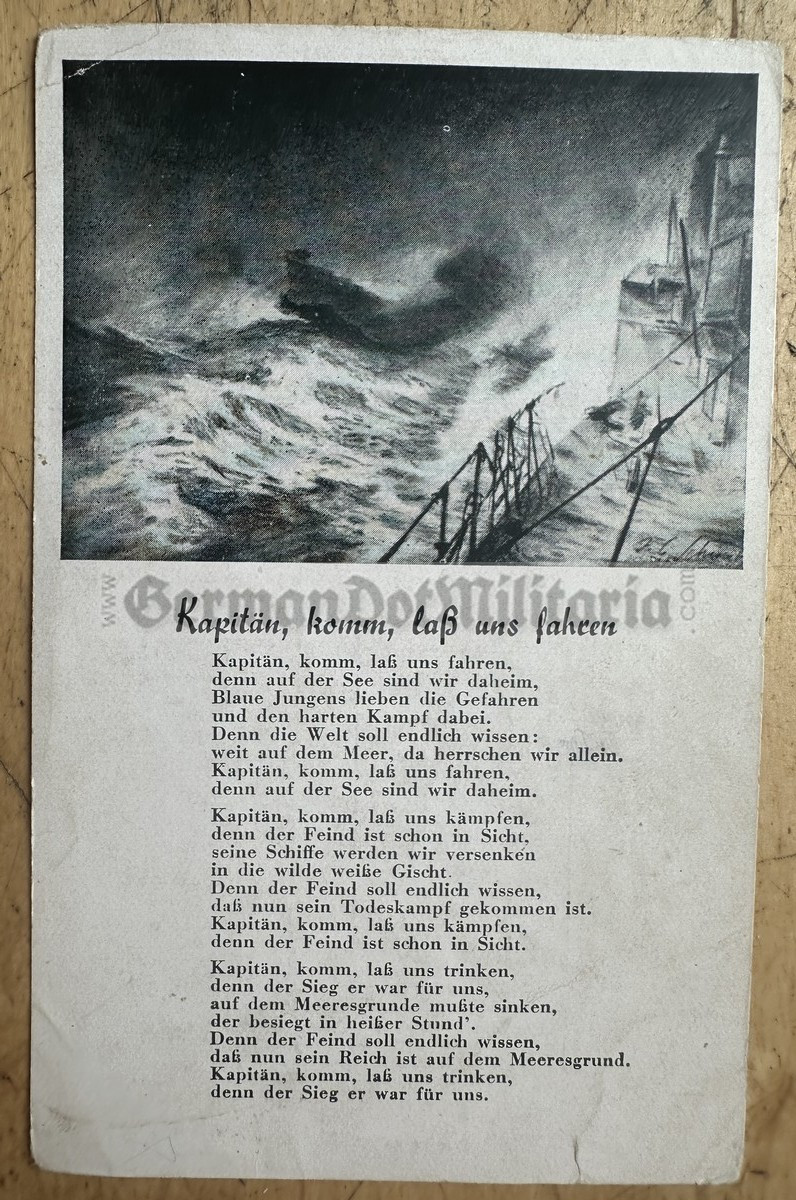 www.GermanDotMilitaria.com
Kapitän, komm, laß uns fahren
Kapitän, komm, laß uns fahren,
denn auf der See sind wir daheim,
Blaue Jungens lieben die Gefahren
und den harten Kampf dabei.
Denn die Welt soll endlich wissen:
weit auf dem Meer, da herrschen wir allein.
Kapitän, komm, laß uns fahren,
denn auf der See sind wir daheim.
Kapitän, komm, laß uns kämpfen,
denn der Feind ist schon in Sicht,
seine Schiffe werden wir versenken
in die wilde weiße Gischt.
Denn der Feind soll endlich wissen,
daß nun sein Todeskampf gekommen ist.
Kapitän, komm, laß uns kämpfen,
denn der Feind ist schon in Sicht.
Kapitän, komm, laß uns trinken,
denn der Sieg er war für uns,
auf dem Meeresgrunde mußte sinken,
der besiegt in heißer Stund’.
Denn der Feind soll endlich wissen,
daß nun sein Reich ist auf dem Meeresgrund.
Kapitän, komm, laß uns trinken,
denn der Sieg er war für uns.